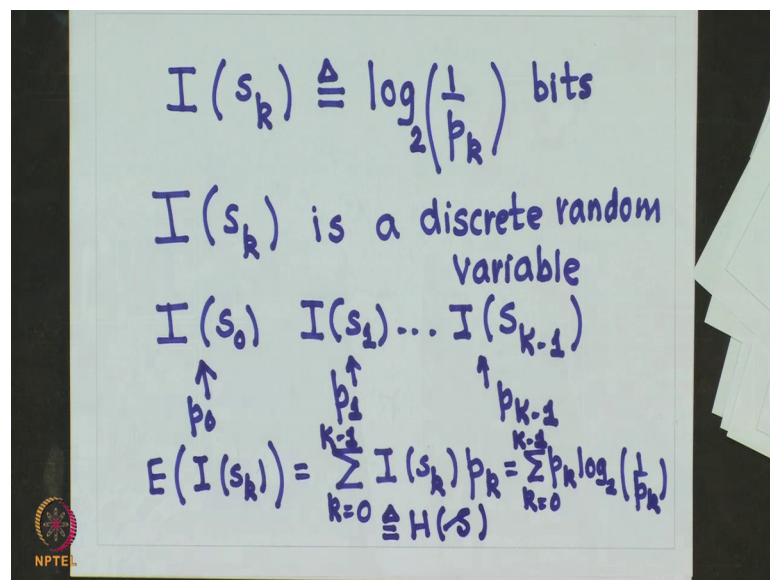 I(s_k) ≜ log_2(1/p_k) bits
I(s_k) is a discrete random
variable
I(s_0) I(s_1)... I(s_{K-1})
↑ ↑ ↑
p_0 p_1 p_{K-1}
E(I(s_k)) = \sum_{k=0}^{K-1} I(s_k) p_k = \sum_{k=0}^{K-1} p_k log_2(1/p_k)
≜ H(𝒮)
NPTEL